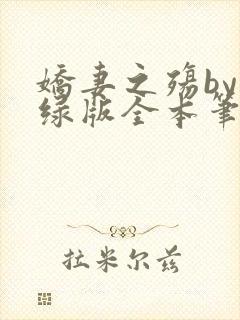 嬌妻之殇by
绿版全本筆
拉米尔兹